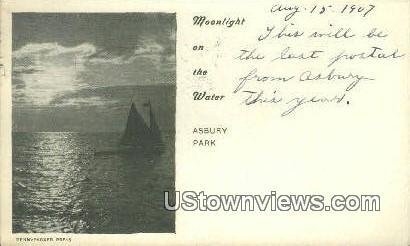 Aug. 15 - 1907
Moonlight
on
the
Water
This will be
the last postal
from Asbury
this year.
ASBURY
PARK
USTownviews.com
PENNYPACKER PRESS